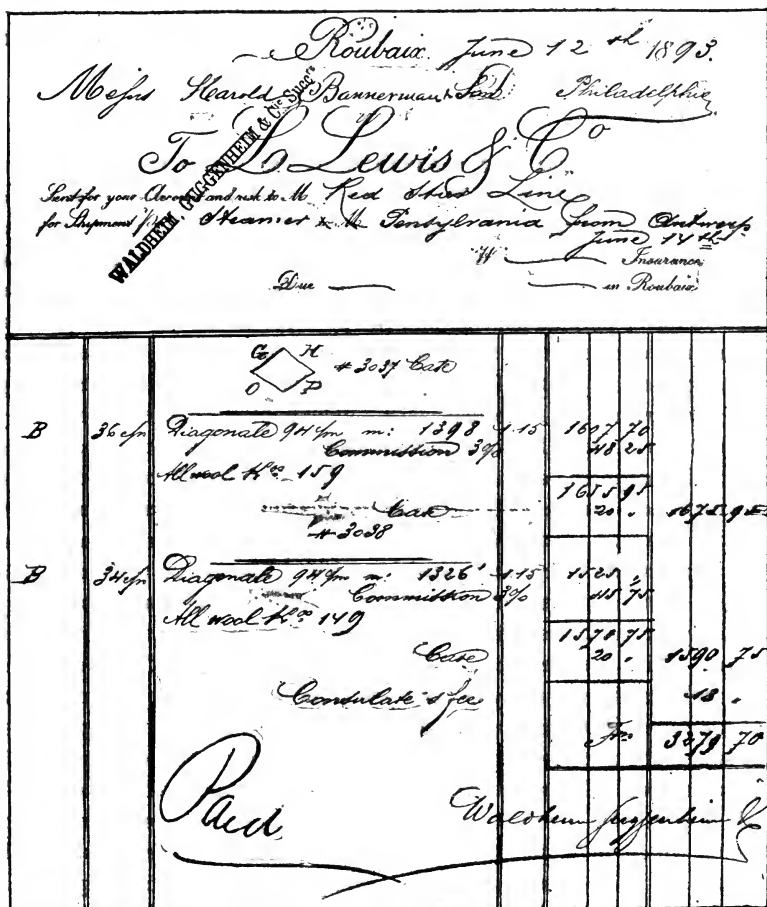 Roubaix June 12th 1893.
Messrs Harold Bannerman & Son Philadelphie
To L. Lewis & Co
WALDHEIM, GUGGENHEIM & Cie Succrs
Sent for your Account and risk to M. Red Star Line
for Shipment Steamer Pensylvania from Antwerp
June 14th
Insurance
Due in Roubaix
G H
# 3037 Case
O P
B 36 Diagonale 94 c/m m: 1398 1.15 1607 70
Commission 3% 48 25
All wool Kos 159 1655 95
Case 20 " 1675 95
# 3038
B 34 Diagonale 94 c/m m: 1326 1.15 1525 "
Commission 3% 45 75
All wool Kos 149 1570 75
Case 20 " 1590 75
Consulate's fee 13 "
Frs 3279 70
Paid
Waldheim Guggenheim &